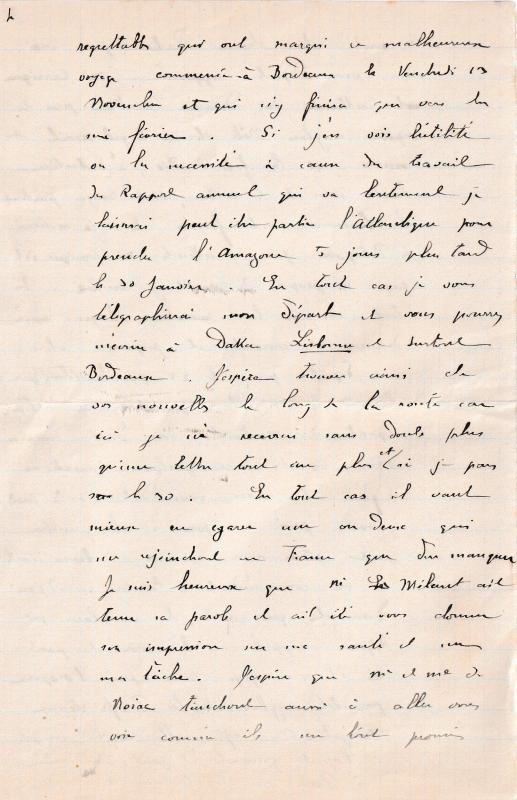 4
regrettables qui ont marqué ce malheureux
voyage commencé à Bordeaux le Vendredi 13
Novembre et qui n'y finira que vers le
mi février. Si j'en vois l'utilité
ou la nécessité à cause du travail
du Rapport annuel qui va lentement je
laisserai peut être partir l'Atlantique pour
prendre l'Amazone 5 jours plus tard
le 30 Janvier. En tout cas je vous
télégraphierai mon Départ et vous pourrez
m'écrire à Dakar Lisbonne et surtout
Bordeaux. J'espère trouver ainsi de
vos nouvelles le long de la route car
ici je n'en recevrai sans doute plus
qu'une lettre tout au plus et si je pars
le 30. En tout cas il vaut
mieux en égarer une ou deux qui
me rejoindront en France que d'en manquer
Je suis heureux que Mr Mélinet ait
tenu sa parole et ait été vous donner
son impression sur ma santé et sur
ma tâche. J'espère que Mr et Mme de
Noiac tiendront aussi à aller vous
voir comme ils me l'ont promis